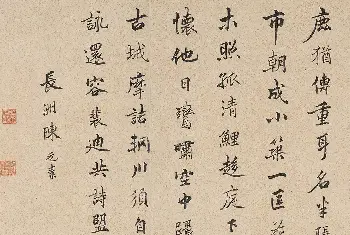 鹿猶傳重耳名半張
市朝成小築一匡
木照孤清鯉趍庭下
懷他日鸞嘯空中躡
古城摩詰輞川須自
詠還容裴迪共詩盟
長洲陳元素